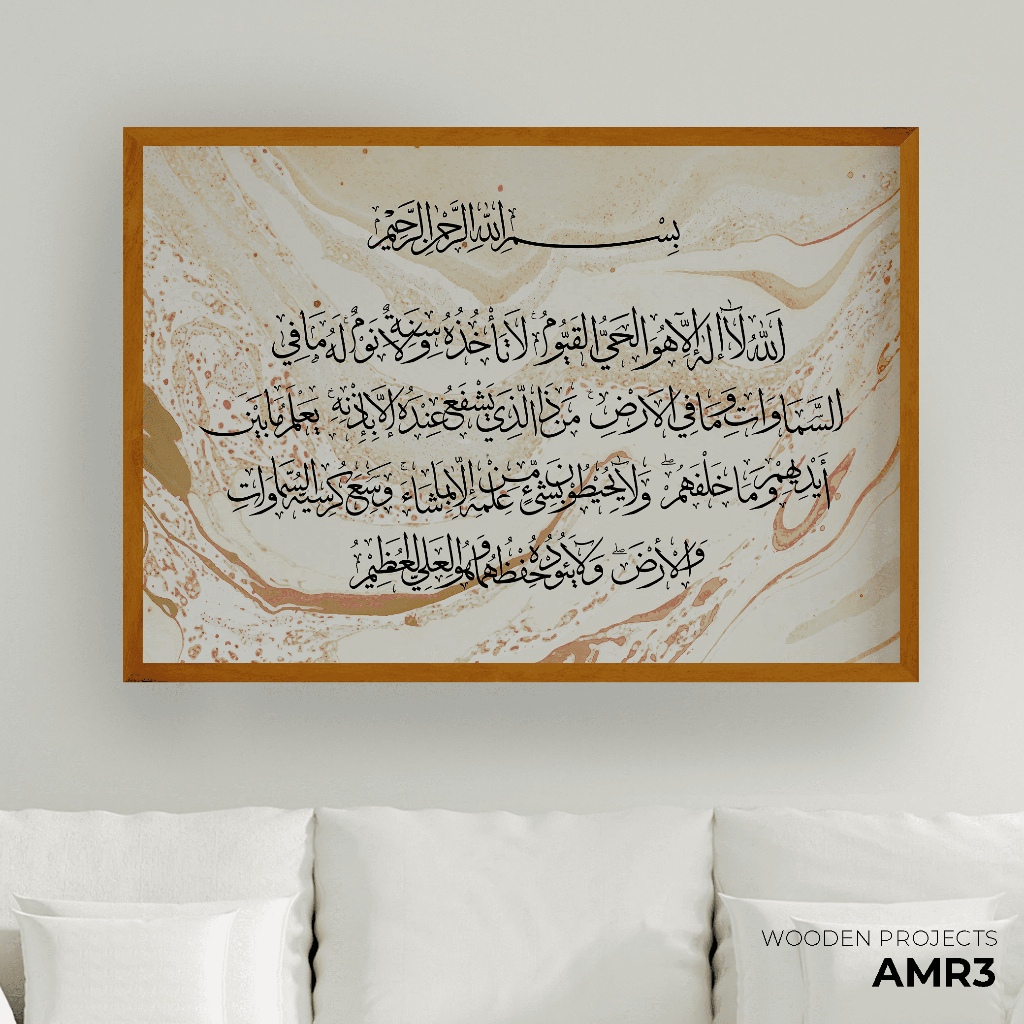 بِسْمِ اللهِ الرَّحْمٰنِ الرَّحِيْمِ
اَللهُ لَآ اِلٰهَ اِلَّا هُوَ الْحَيُّ الْقَيُّوْمُ ۚ لَا تَأْخُذُهُ سِنَةٌ وَلَا نَوْمٌ لَهُ مَا فِي
السَّمَاوَاتِ وَمَا فِي الْاَرْضِ ۗ مَنْ ذَا الَّذِيْ يَشْفَعُ عِنْدَهُ اِلَّا بِاِذْنِهِ ۚ يَعْلَمُ مَا بَيْنَ
أَيْدِيْهِمْ وَمَا خَلْفَهُمْ ۖ وَلَا يُحِيْطُوْنَ بِشَيْءٍ مِّنْ عِلْمِهِ اِلَّا بِمَا شَاءَ ۚ وَسِعَ كُرْسِيُّهُ السَّمَاوَاتِ
وَالْأَرْضَ ۖ وَلَا يَئُوْدُهُ حِفْظُهُمَا وَهُوَ الْعَلِيُّ الْعَظِيْمُ
WOODEN PROJECTS
AMR3